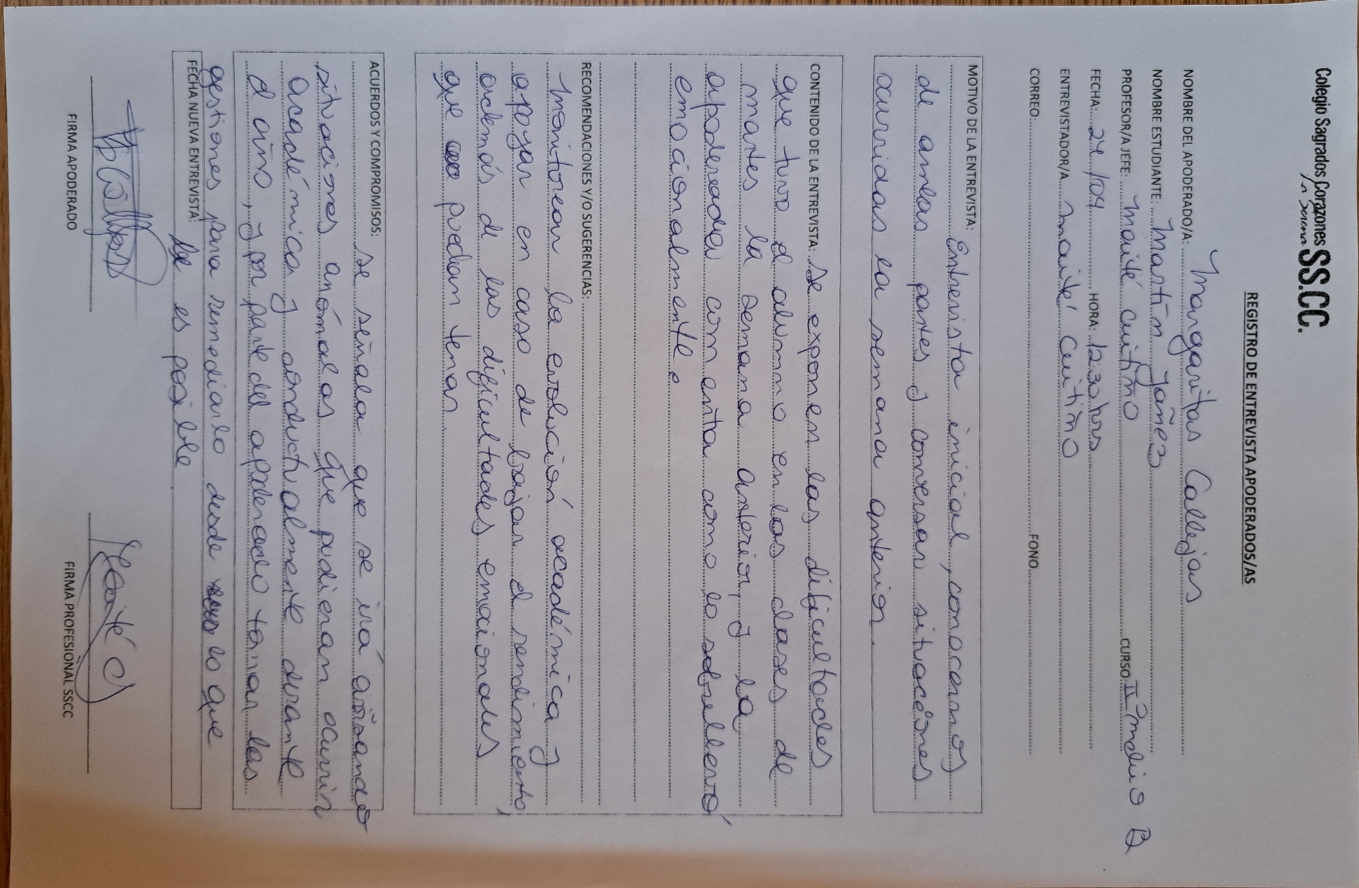 Colegio Sagrados Corazones
SS.CC.
REGISTRO DE ENTREVISTA APODERADOS/AS
NOMBRE DEL APODERADO/A: Margaritas Callejas
NOMBRE ESTUDIANTE: Martín Yañez
PROFESOR/A JEFE: Maité Cuitiño CURSO: IIº medio B
FECHA: 24/04 HORA: 12:30 hrs
ENTREVISTADOR/A Maité Cuitiño
CORREO FONO
MOTIVO DE LA ENTREVISTA: Entrevista inicial, conocernos
de ambas partes y conversar situaciones
ocurridas la semana anterior.
CONTENIDO DE LA ENTREVISTA: Se exponen las dificultades
que tuvo el alumno en las clases de
martes la semana anterior, y la
apoderada comenta como lo sobrellevó
emocionalmente.
RECOMENDACIONES Y/O SUGERENCIAS:
Monitorear la evolución académica y
apoyar en caso de bajar el rendimiento,
además de las dificultades emocionales
que puedan tener.
ACUERDOS Y COMPROMISOS: Se señala que se irá avisando
situaciones anómalas que pudieran ocurrir
académica y conductualmente durante
el año, y por parte del apoderado tomar las
gestiones para remediarlo desde lo que
FECHA NUEVA ENTREVISTA: es posible.
FIRMA APODERADO
Maité C
FIRMA PROFESIONAL SSCC